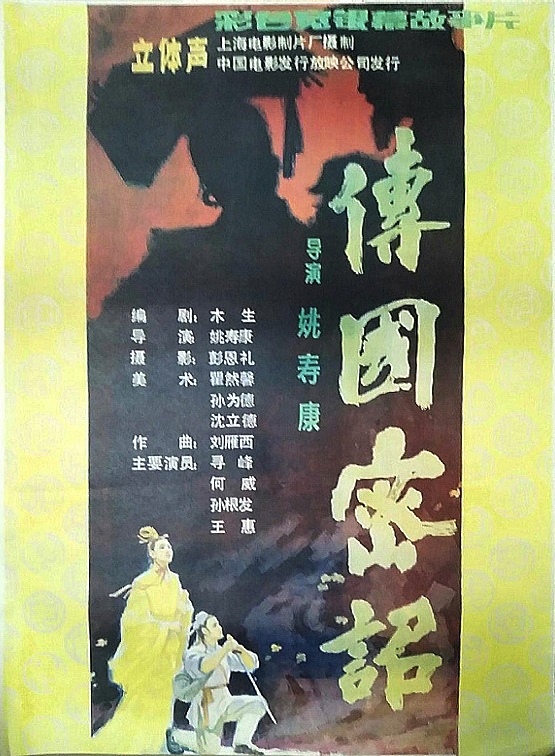 彩色宽银幕故事片
立体声
上海电影制片厂摄制
中国电影发行放映公司发行
傳國密詔
导演 姚寿康
编 剧: 木 生
导 演: 姚寿康
摄 影: 彭恩礼
美 术: 瞿然馨
孙为德
沈立德
作 曲: 刘雁西
主要演员: 寻 峰
何 威
孙根发
王 惠